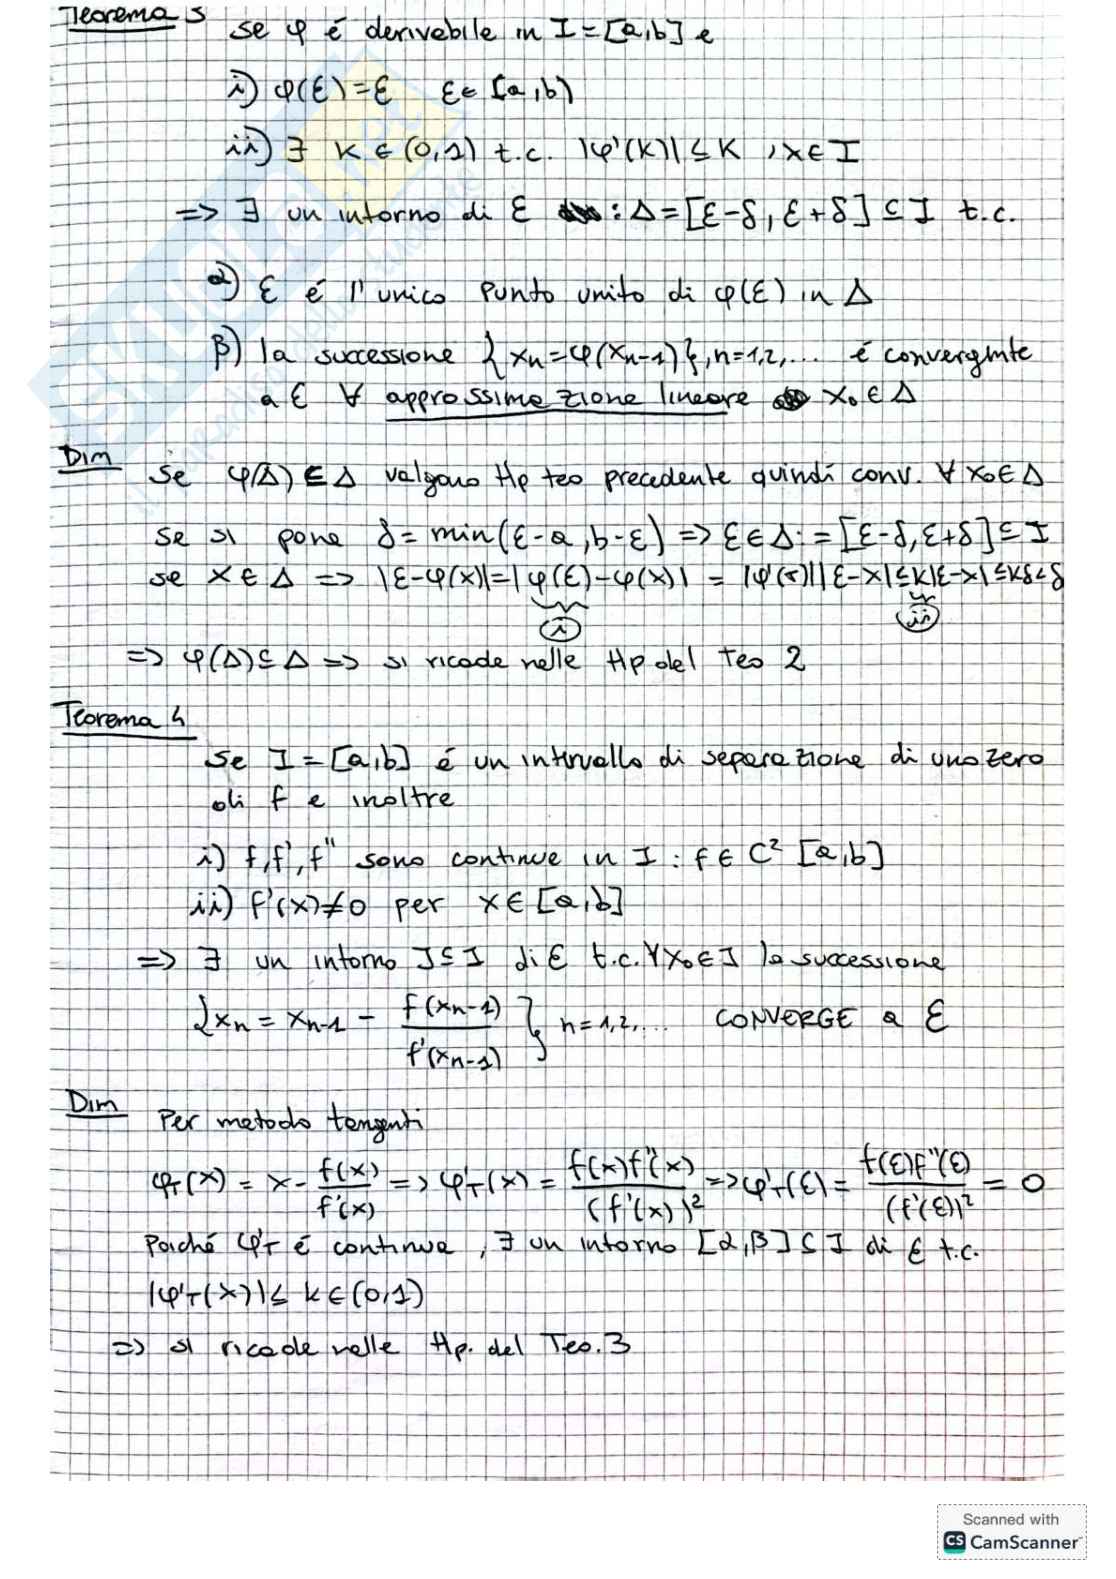 Teorema 3 se φ é derivabile in I=[a,b] e
i) φ(ξ)=ξ ξ∈[a,b)
ii) ∃ K∈(0,1) t.c. |φ'(K)|≤K, x∈I
=> ∃ un intorno di ξ : Δ=[ξ-δ, ξ+δ]⊆I t.c.
α) ξ é l'unico punto unito di φ(ξ) in Δ
β) la successione {xn=φ(xn-1)}, n=1,2,... é convergente
a ξ ∀ approssimazione lineare x₀∈Δ
Dim se φ(Δ)⊆Δ valgono Hp teo precedente quindi conv. ∀ x₀∈Δ
se si pone δ=min(ξ-a, b-ξ) => ξ∈Δ:=[ξ-δ,ξ+δ]⊆I
se x∈Δ => |ξ-φ(x)|=|φ(ξ)-φ(x)| = |φ'(τ)||ξ-x|≤K|ξ-x|≤Kδ<δ
i ii
=> φ(Δ)⊆Δ => si ricade nelle Hp del Teo 2
Teorema 4
Se I=[a,b] é un intervallo di separazione di uno zero
di f e inoltre
i) f,f',f'' sono continue in I : f∈C² [a,b]
ii) f'(x)≠0 per x∈[a,b]
=> ∃ un intorno J⊆I di ξ t.c. ∀x₀∈J la successione
{xn = xn-1 - f(xn-1)/f'(xn-1)} n=1,2,... CONVERGE a ξ
Dim Per metodo tangenti
φT(x) = x - f(x)/f'(x) => φ'T(x) = f(x)f''(x)/(f'(x))² => φ'T(ξ) = f(ξ)f''(ξ)/(f'(ξ))² = 0
Poiché φ'T é continua, ∃ un intorno [α,β]⊆I di ξ t.c.
|φ'T(x)|≤ k∈(0,1)
=> si ricade nelle Hp. del Teo. 3
SKUOLA.net
il paradiso dello studente
Scanned with
CS CamScanner